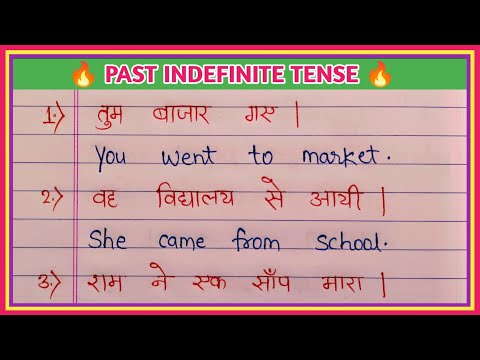 🔥 PAST INDEFINITE TENSE 🔥
1.) तुम बाजार गए |
You went to market.
2.) वह विद्यालय से आयी |
She came from school.
3.) राम ने एक साँप मारा |